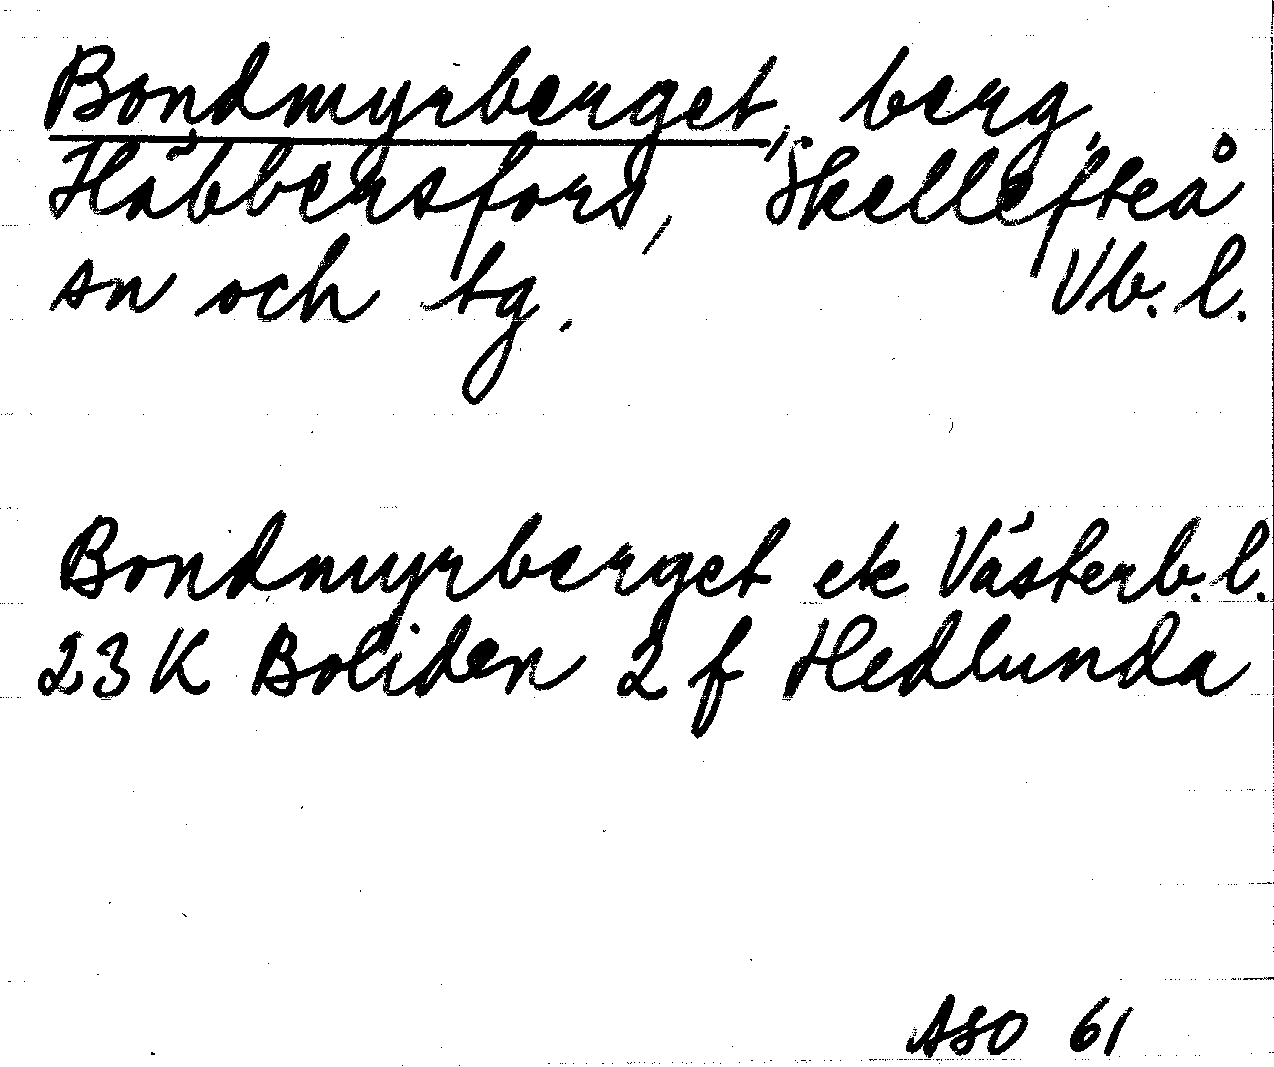 Bondmyrberget, berg,
Häbbersfors, Skellefteå
sn och tg. Vb. l.
Bondmyrberget ek Västerb. l.
23 K Boliden 2 f Hedlunda
ASO 61